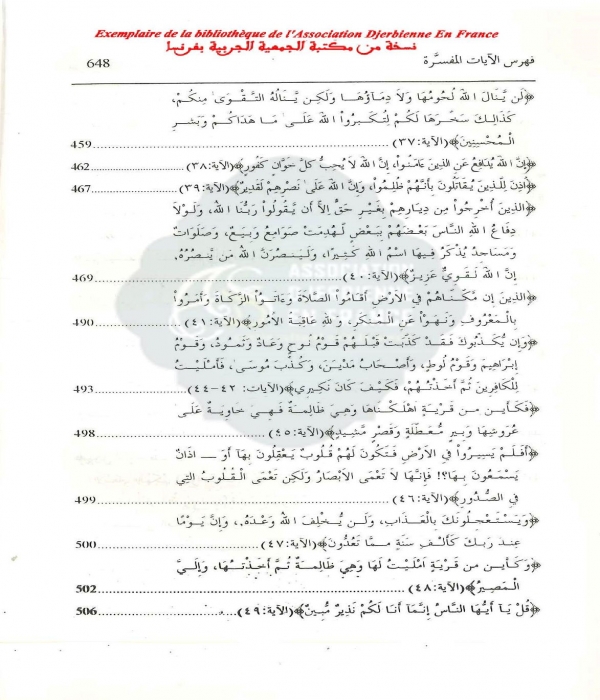 Exemplaire de la bibliothèque de l'Association Djerbienne En France
نسخة من مكتبة الجمعية الجربية بفرنسا
فهرس الآيات المفسَّرة 648
﴿لَن يَّنَالَ اللهَ لُحُومُهَا وَلاَ دِمَاؤُهَا وَلَكِن يَّنَالُهُ التَّقْوَىا مِنكُمْ،
كَذَالِكَ سَخَّرَهَا لَكُمْ لِتُكَبِّرُواْ اللهَ عَلَىا مَا هَدَاكُمْ وَبَشِّرِ
الْمُحْسِنِينَ﴾(الآية:٣٧) 459
﴿إِنَّ اللهَ يُدَافِعُ عَنِ الذِينَ ءَامَنُواْ، إِنَّ اللهَ لاَ يُحِبُّ كُلَّ خَوَّانٍ كَفُورٍ﴾(الآية:٣٨) 462
﴿أُذِنَ لِلَّذِينَ يُقَاتَلُونَ بِأَنَّهُمْ ظُلِمُواْ، وَإِنَّ اللهَ عَلَىا نَصْرِهِمْ لَقَدِيرٌ﴾(الآية:٣٩) 467
﴿الذِينَ أُخْرِجُواْ مِن دِيَارِهِم بِغَيْرِ حَقٍّ اِلآَّ أَنْ يَّقُولُواْ رَبُّنَا اللهُ، وَلَوْلاَ
دِفَاعُ اللهِ النَّاسَ بَعْضَهُمْ بِبَعْضٍ لَهُدِمَتْ صَوَامِعُ وَبِيَعٌ، وَصَلَوَاتٌ
وَمَسَاجِدُ يُذْكَرُ فِيهَا اسْمُ اللهِ كَثِيرًا، وَلَيَنصُرَنَّ اللهُ مَن يَّنصُرُهُ،
إِنَّ اللهَ لَقَوِيٌّ عَزِيزٌ﴾(الآية:٤٠) 469
﴿الذِينَ إِن مَّكَّنَّاهُمْ فِي الاَرْضِ أَقَامُواْ الصَّلاَةَ وَءَاتَوُاْ الزَّكَاةَ وَأَمَرُواْ
بِالْمَعْرُوفِ وَنَهَوْاْ عَنِ الْمُنكَرِ، وَلِلهِ عَاقِبَةُ الاُمُورِ﴾(الآية:٤١) 490
﴿وَإِنْ يُّكَذِّبُوكَ فَقَدْ كَذَّبَتْ قَبْلَهُمْ قَوْمُ نُوحٍ وَعَادٌ وَثَمُودُ، وَقَوْمُ
إِبْرَاهِيمَ وَقَوْمُ لُوطٍ، وَأَصْحَابُ مَدْيَنَ، وَكُذِّبَ مُوسَىا، فَأَمْلَيْتُ
لِلْكَافِرِينَ ثُمَّ أَخَذتُّهُمْ، فَكَيْفَ كَانَ نَكِيرِي﴾(الآيات: ٤٢-٤٤) 493
﴿فَكَأَيِّن مِّن قَرْيَةٍ اَهْلَكْنَاهَا وَهِيَ ظَالِمَةٌ فَهِيَ خَاوِيَةٌ عَلَىا
عُرُوشِهَا وَبِيرٍ مُّعَطَّلَةٍ وَقَصْرٍ مَّشِيدٍ﴾(الآية:٤٥) 498
﴿أَفَلَمْ يَسِيرُواْ فِي الاَرْضِ فَتَكُونَ لَهُمْ قُلُوبٌ يَعْقِلُونَ بِهَا أَوَ — اذَانٌ
يَسْمَعُونَ بِهَا؟! فَإِنَّهَا لاَ تَعْمَى الاَبْصَارُ وَلَكِن تَعْمَى الْقُلُوبُ التِي
فِي الصُّدُورِ﴾(الآية:٤٦) 499
﴿وَيَسْتَعْجِلُونَكَ بِالْعَذَابِ، وَلَن يُّخْلِفَ اللهُ وَعْدَهُ، وَإِنَّ يَوْمًا
عِندَ رَبِّكَ كَأَلْفِ سَنَةٍ مِّمَّا تَعُدُّونَ﴾(الآية:٤٧) 500
﴿وَكَأَيِّن مِّن قَرْيَةٍ اَمْلَيْتُ لَهَا وَهِيَ ظَالِمَةٌ ثُمَّ أَخَذتُّهَا، وَإِلَيَّ
الْمَصِيرُ﴾(الآية:٤٨) 502
﴿قُلْ يَآ أَيُّهَا النَّاسُ إِنَّمَآ أَنَا لَكُمْ نَذِيرٌ مُّبِينٌ﴾(الآية:٤٩) 506